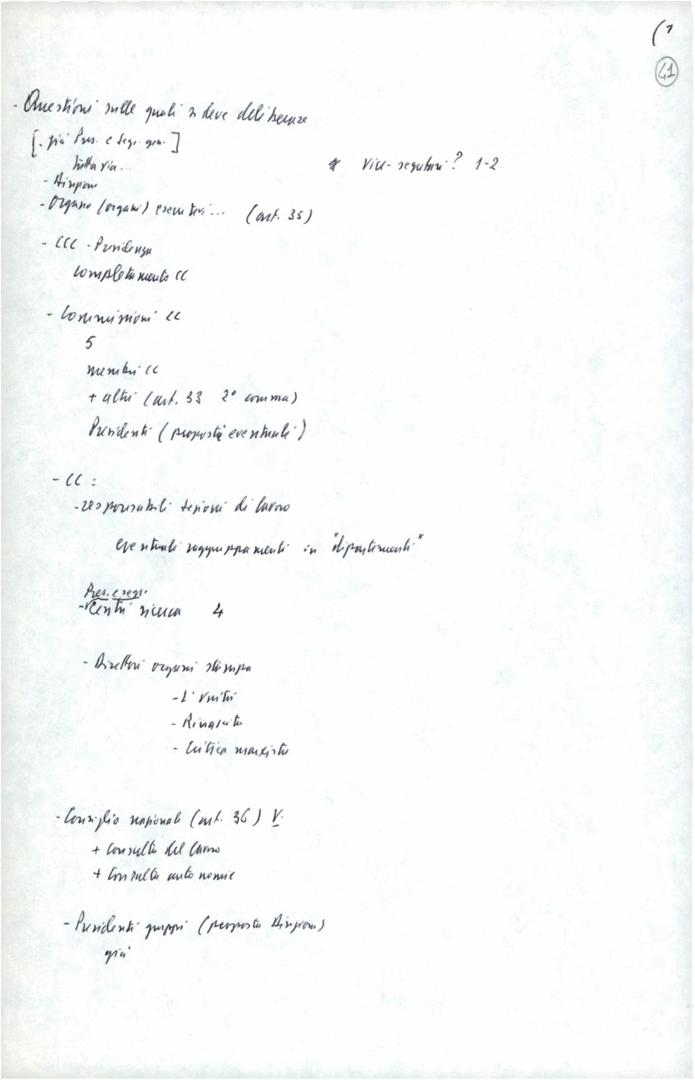 (1
41
- Questioni sulle quali si deve deliberare
[. già Pres. e Segr. gen.]
tuttavia...
* Vice-segretari? 1-2
- Direzione
- Organo (organi) esecutivi... (art. 35)
- CCC - Presidenza
completamento CC
- Commissioni CC
5
membri CC
+ altri (art. 33 2° comma)
Presidenti (proposte eventuali)
- CC :
- responsabili sezioni di lavoro
eventuali raggruppamenti in "dipartimenti"
Pres. e segr.
- Centri ricerca 4
- Direttori organi stampa
- L'Unità
- Rinascita
- Critica marxista
- Consiglio nazionale (art. 36) V.
+ Consulta del lavoro
+ Consulta autonomie
- Presidenti gruppi (proposta Direzione)
già